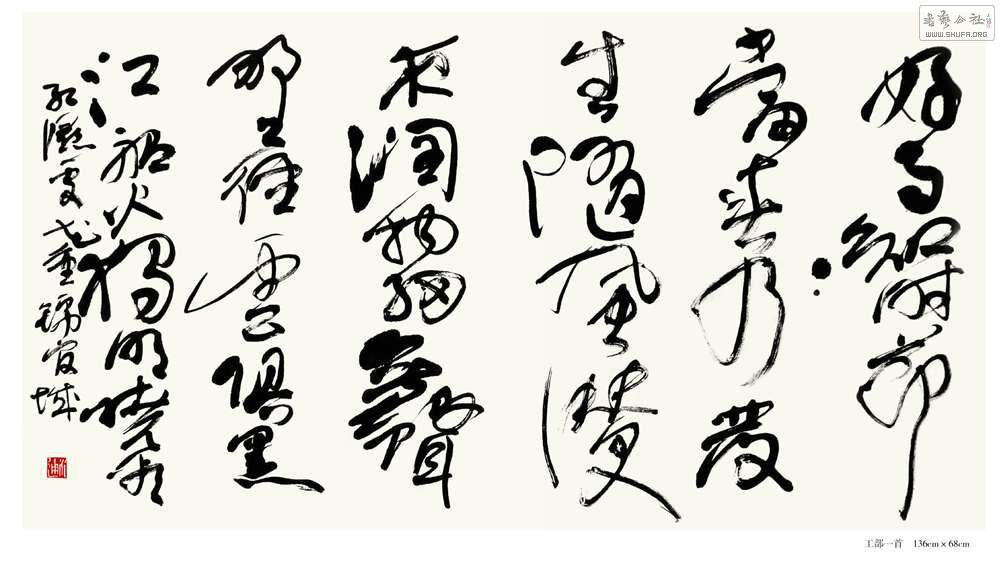 書藝公社
WWW.SHUFA.ORG
好雨知時節
當春乃發
生隨風潛入
夜潤物細無聲
野徑雲俱黑
江船火獨明曉看
紅濕處花重錦官城
工部一首 136cm×68cm